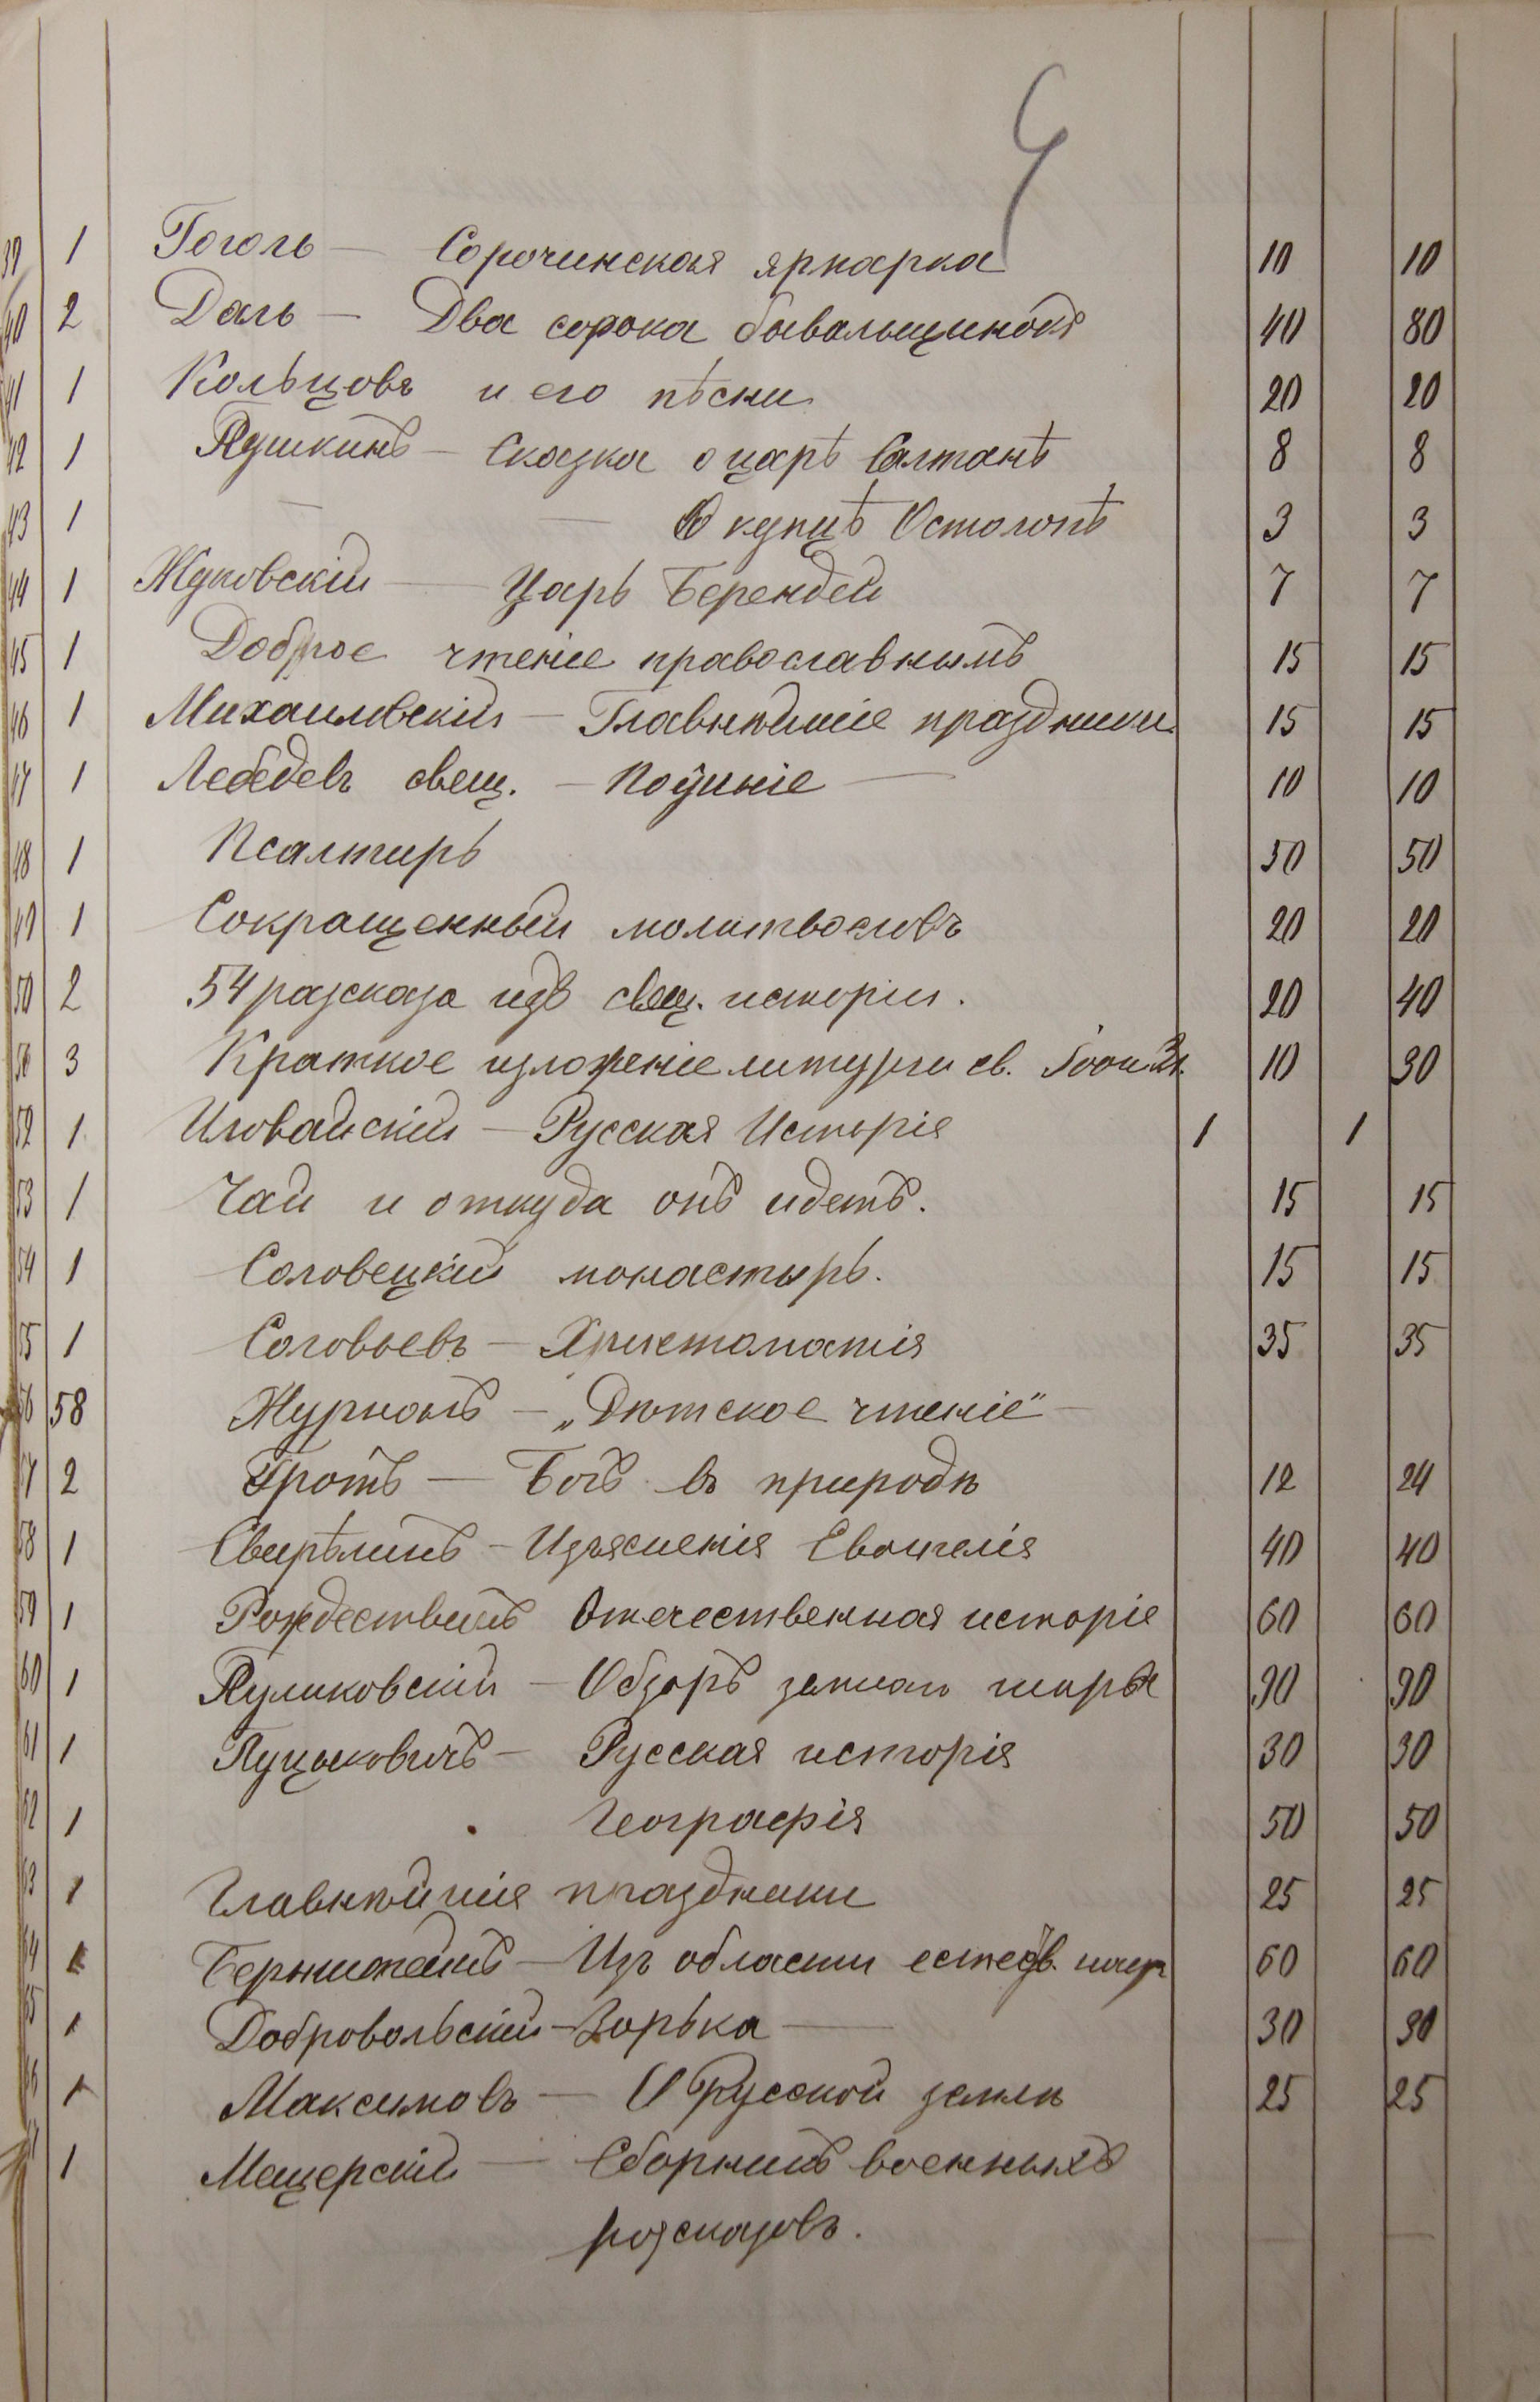 4
39 1 Гоголь — Сорочинская ярмарка 10 10
40 2 Даль — Два сорока бывальщинокъ 40 80
41 1 Кольцовъ и его пѣсни 20 20
42 1 Пушкинъ — Сказка о царѣ Салтанѣ 8 8
43 1 — — О купцѣ Остолопѣ 3 3
44 1 Жуковскій — Царь Берендей 7 7
45 1 Доброе чтеніе православнымъ 15 15
46 1 Михайловскій — Главнѣйшіе праздники 15 15
47 1 Лебедевъ свещ. — — 10 10
48 1 Псалтирь 50 50
49 1 Сокращенный молитвословъ 20 20
50 2 54 разсказа изъ свещ. исторіи. 20 40
3 Краткое изложеніе литургіи св. 10 30
52 1 Иловайскій — Русская Исторія 1 1
53 1 Чай и откуда онъ идетъ. 15 15
54 1 Соловецкій монастырь. 15 15
55 1 Соловьевъ — Христоматія 35 35
56 58 Журналъ — „Дѣтское чтеніе" —
57 2 Гротъ — Богъ въ природѣ 12 24
58 1 — Изъясненія Евангелія 40 40
59 1 Отечественная исторіе 60 60
60 1 Пуликовскій — Обзоръ земнаго шара 90 90
61 1 Пуцыковичъ — Русская исторія 30 30
62 1 Географія 50 50
63 1 Главнѣйшія праздники 25 25
64 1 — Изъ области 60 60
65 1 Добровольскій — Зорька — 30 30
66 1 Максимовъ — О Русской землѣ 25 25
1 Мещерскій — Сборникъ военныхъ
разсказовъ. — —